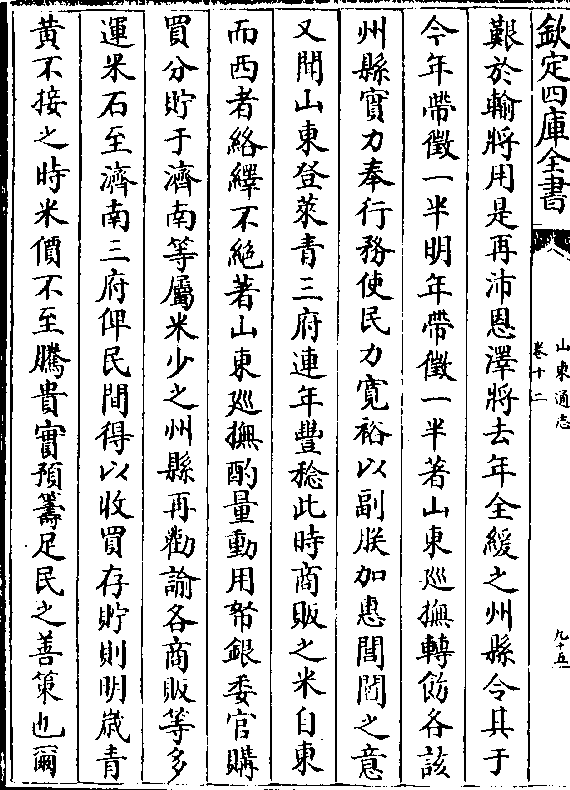 欽定四庫全書
山東通志
卷十二
九十五
艱於輸將用是再沛恩澤將去年全緩之州縣令其于
今年帶徵一半明年帶徵一半著山東廵撫轉飭各該
州縣實力奉行務使民力寛裕以副朕加惠閭閻之意
又聞山東登萊青三府連年豐稔此時商販之米自東
而西者絡繹不絶著山東廵撫酌量動用帑銀委官購
買分貯于濟南等屬米少之州縣再勸諭各商販等多
運米石至濟南三府俾民間得以收買存貯則明嵗青
黄不接之時米價不至騰貴實預籌足民之善策也爾